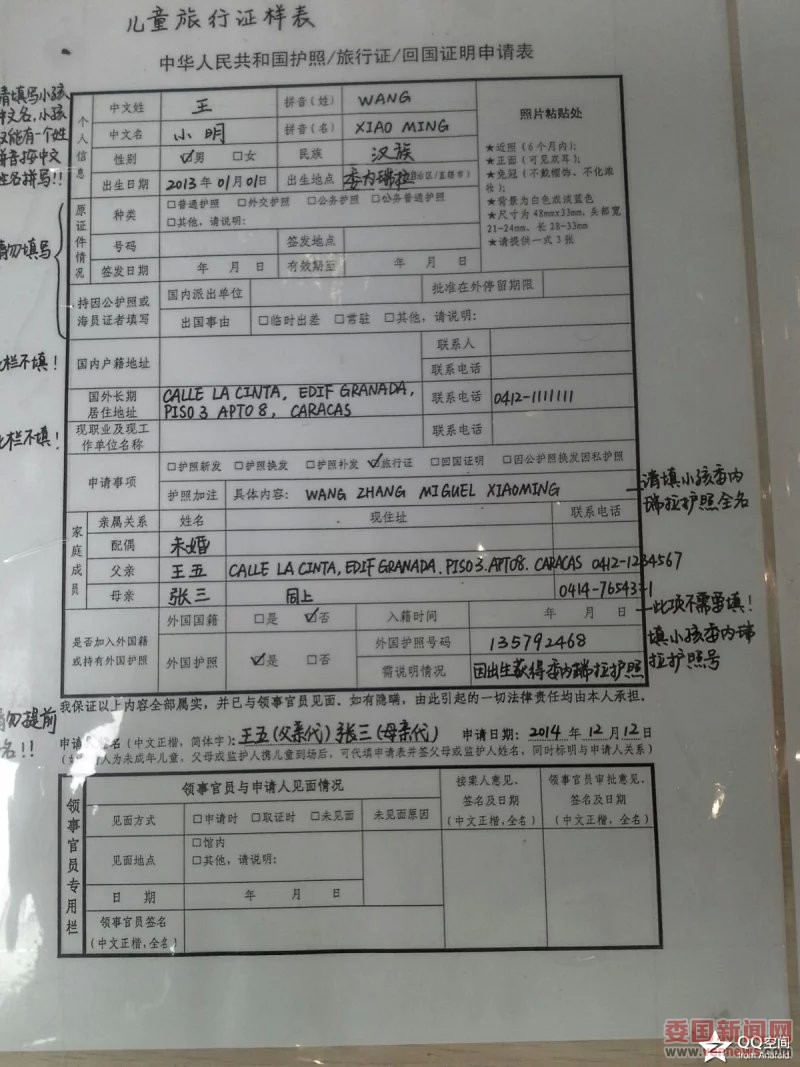 儿童旅行证样表
中华人民共和国护照/旅行证/回国证明申请表
请填写小孩
中文名,小孩
仅能有一个姓
拼音按中文
姓名拼写!!
个人信息
中文姓 王 拼音(姓) WANG
中文名 小明 拼音(名) XIAO MING
性别 ☑男 □女 民族 汉族
出生日期 2013年01月01日 出生地点 委内瑞拉
照片粘贴处
★近照(6个月内);
★正面(可见双耳);
★免冠(不戴帽饰、不化浓
妆);
★背景为白色或淡蓝色
★尺寸为48mm×33mm、头部宽
21-24mm、长28-33mm
★请提供一式3张
请勿填写
原证件情况
种类 □普通护照 □外交护照 □公务护照 □公务普通护照
□其他,请说明:
号码 签发地点
签发日期 年 月 日 有效期至 年 月 日
持因公护照或
海员证者填写
国内派出单位 批准在外停留期限
出国事由 □临时出差 □常驻 □其他,请说明:
此栏不填!
国内户籍地址 联系人
联系电话
国外长期
居住地址
CALLE LA CINTA, EDIF GRANADA,
PISO 3 APTO 8, CARACAS
联系电话 0412-1111111
此栏不填!
现职业及现工
作单位名称
联系电话
申请事项
□护照新发 □护照换发 □护照补发 ☑旅行证 □回国证明 □因公护照换发因私护照
护照加注 具体内容: WANG ZHANG MIGUEL XIAOMING
请填小孩委内
瑞拉护照全名
家庭成员
亲属关系 姓名 现住址 联系电话
配偶 未婚
父亲 王五 CALLE LA CINTA, EDIF GRANADA. PISO 3. APTO8. CARACAS 0412-1234567
母亲 张三 同上 0414-7654321
是否加入外国籍
或持有外国护照
外国国籍 □是 ☑否 入籍时间 年 月 日
此项不需要填!
外国护照 ☑是 □否 外国护照号码 135792468
填小孩委内瑞
拉护照号
需说明情况 因出生获得委内瑞拉护照
我保证以上内容全部属实,并已与领事官员见面。如有隐瞒,由此引起的一切法律责任均由本人承担。
请勿提前
签名!!
申请人签名(中文正楷,简体字):王五(父亲代) 张三(母亲代) 申请日期: 2014年12月12日
(如申请人为未成年儿童,父母或监护人携儿童到场后,可代填申请表并签父母或监护人姓名,同时标明与申请人关系)
领事官员专用栏
领事官员与申请人见面情况
接案人意见、
签名及日期
(中文正楷,全名)
领事官员审批意见、
签名及日期
(中文正楷,全名)
见面方式 □申请时 □取证时 □未见面 未见面原因
见面地点 □馆内
□其他,请说明:
日 期 年 月 日
领事官员签名
(中文正楷,全名)
委国新闻网
QQ空间
from Android